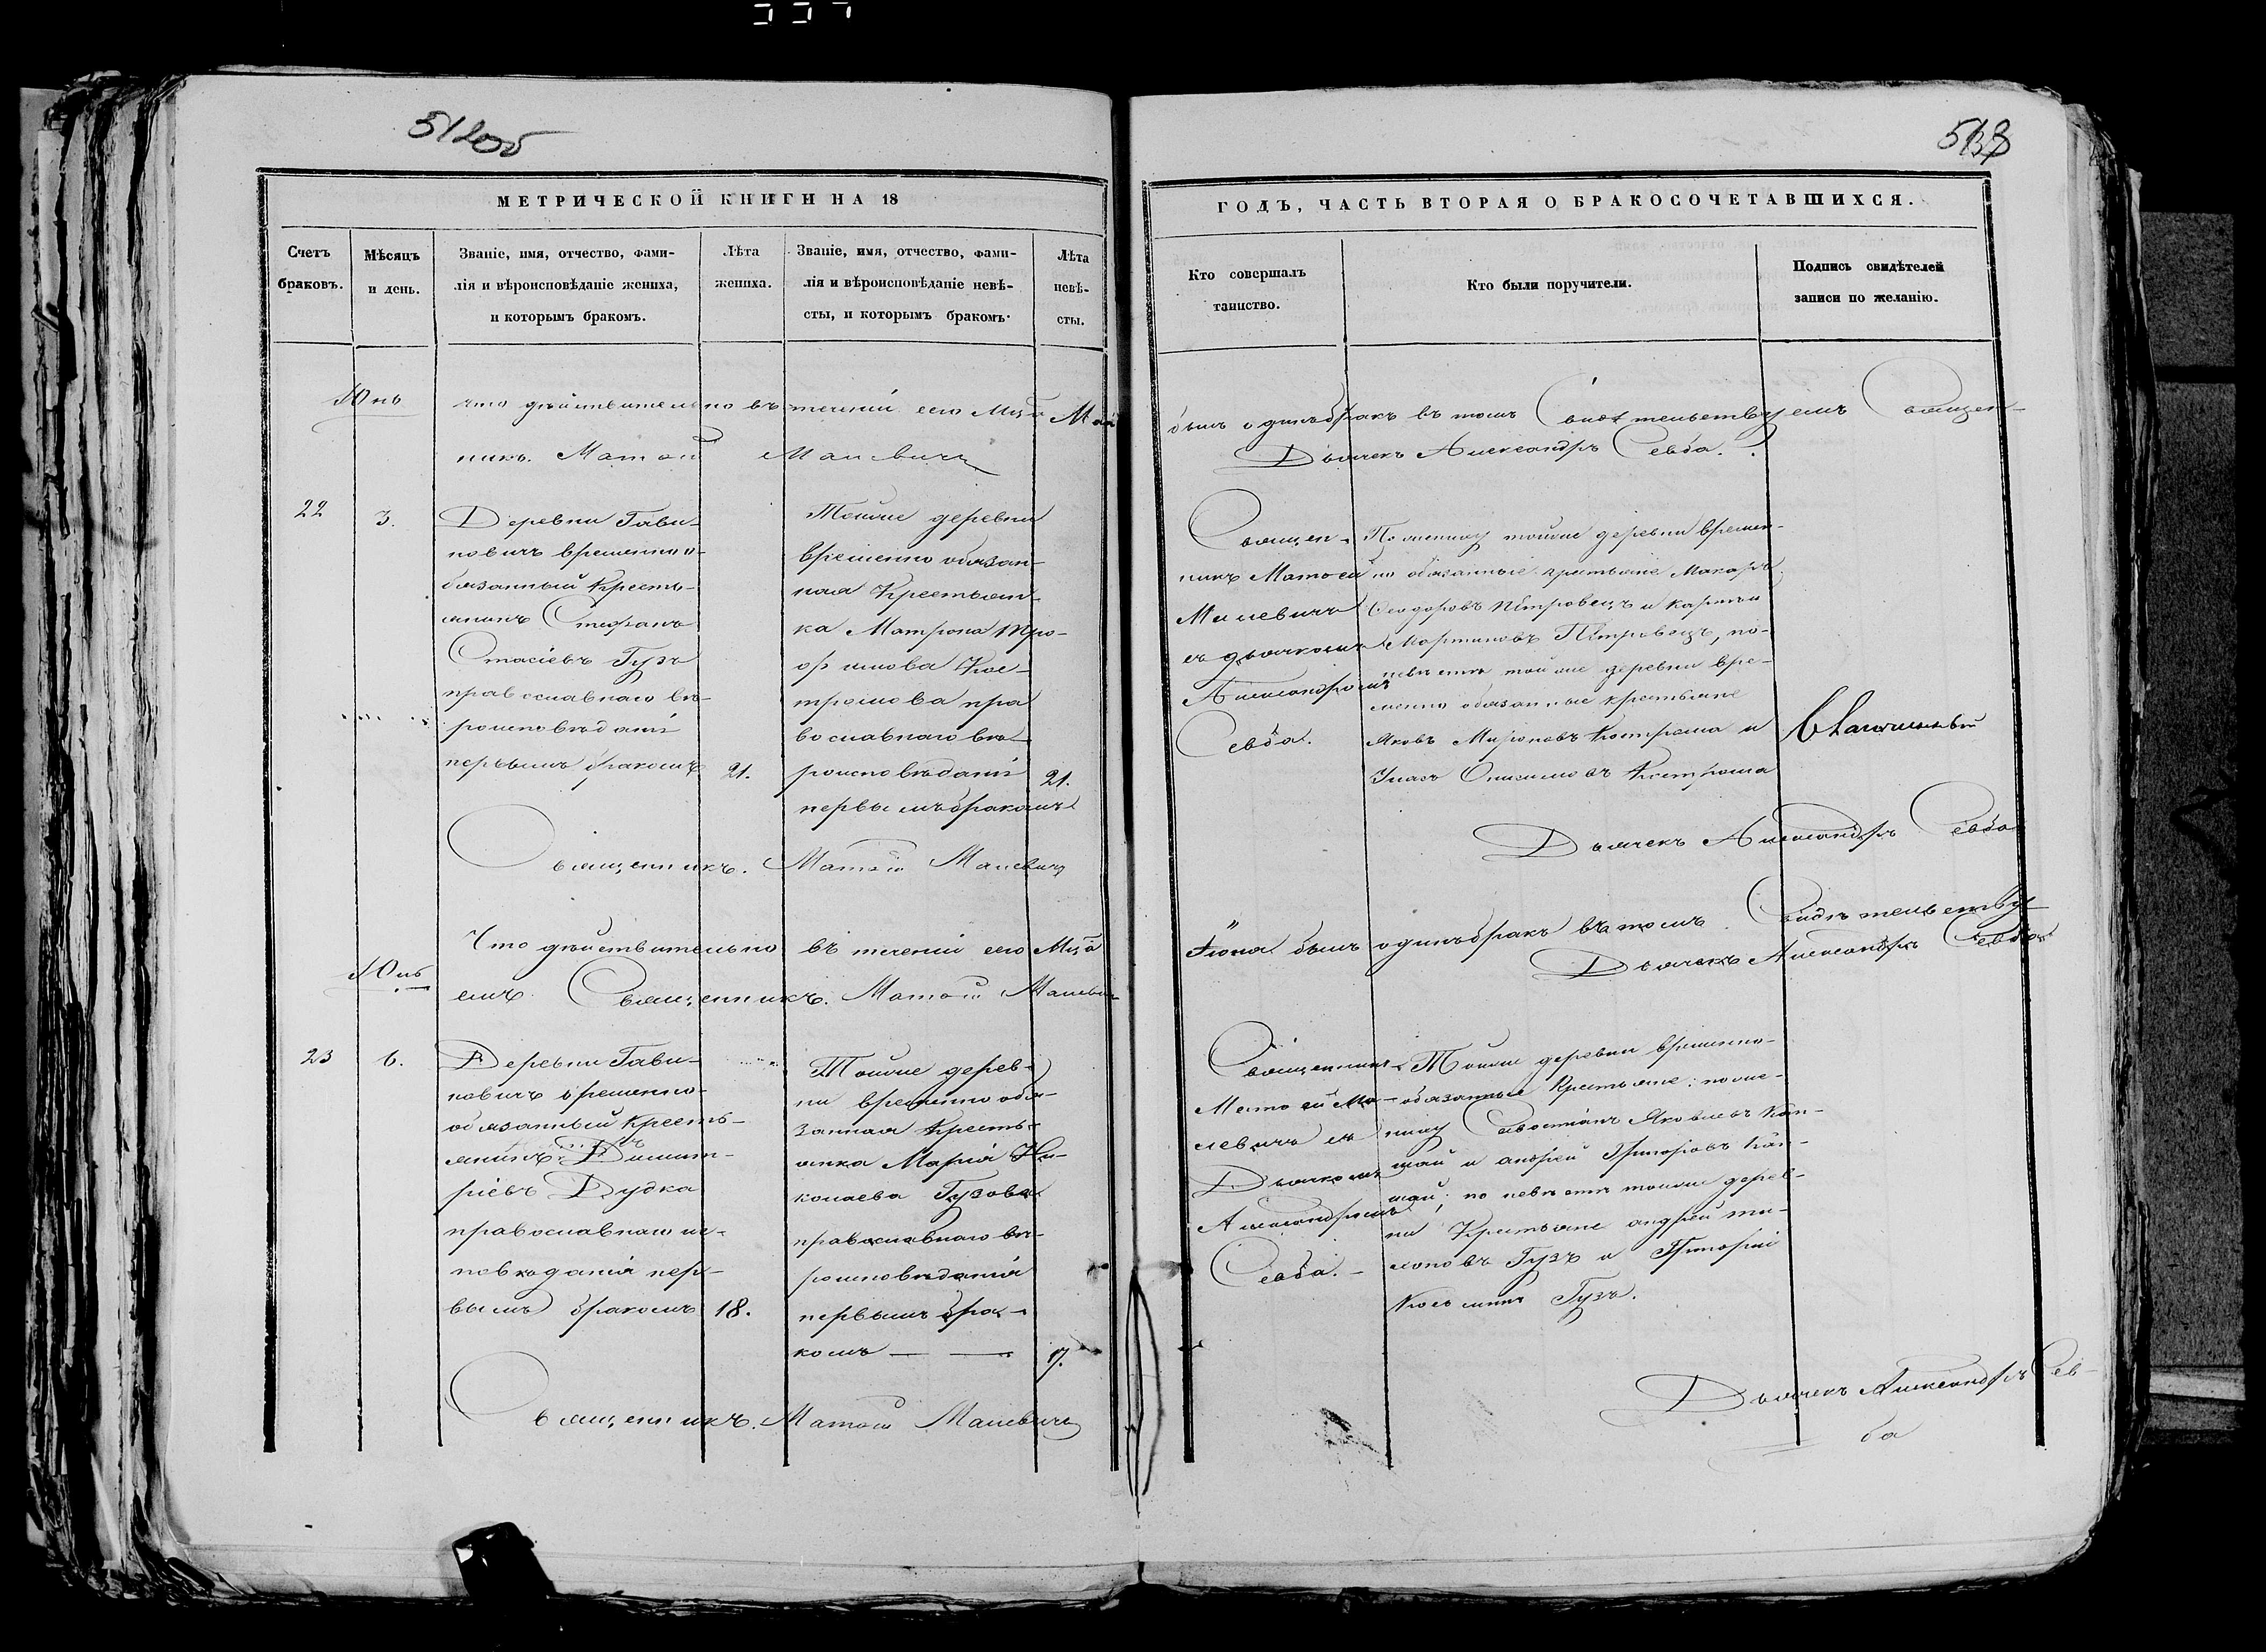 512об
МЕТРИЧЕСКОЙ КНИГИ НА 18
Счетъ браковъ.
Мѣсяцъ и день.
Званіе, имя, отчество, фами-
лія и вѣроисповѣданіе жениха,
и которымъ бракомъ.
Лѣта
жениха.
Званіе, имя, отчество, фами-
лія и вѣроисповѣданіе невѣ-
сты, и которымъ бракомъ.
Лѣта
невѣ-
сты.
Юнь
что действительно въ теченіи сего Мца Маи
никъ. Матвей Малевичъ
22
3.
Деревни Гави-
новичъ временноо-
бязанный Кресть-
янинъ Стефанъ
Стасіевъ Гузъ
православнаго вѣ-
роисповѣданія
первымъ бракомъ
21.
Тойже деревни
временно обязан-
ная Крестьян-
ка Матрона Тро-
фимова Кос-
тромова пра
вославнаго вѣ-
роисповѣданія
первымъ бракомъ
21.
Священникъ. Матвей Малевичъ
Что дѣйствительно въ теченіи сего Мца
Юль
емъ Священникъ. Матвей Малевич
23
6.
Деревни Гави-
новичъ временно-
обязанный Кресть-
янинъ Димит-
ріевъ Дудка
православнаго ис-
повѣданія пер-
вымъ бракомъ
18.
Тойже дерев-
ни временно обя-
занная Кресть-
янка Марія Ни-
колаева Гузова
православнаго вѣ-
роисповѣданія
первымъ бра-
комъ
17.
Священникъ. Матвей Малевичъ
513
ГОДЪ, ЧАСТЬ ВТОРАЯ О БРАКОСОЧЕТАВШИХСЯ.
Кто совершалъ
таинство.
Кто были поручители.
Подпись свидѣтелей
записи по желанію.
былъ одинъ бракъ въ томъ Свидѣтельствуемъ Священ-
Дьячекъ Александръ Севба.
Священ-
никъ Матвей
Малевичъ
съ дьячкомъ
Александромъ
Севба.
По жениху тойже деревни времен-
но обязанные крестьяне Макаръ
Феодоровъ Петровецъ и
Мартиновъ Петровецъ, по
невѣстѣ тойже деревни вре-
менно обязанные крестьяне
Яковъ Мироновъ Костроша и
Онисимовъ Костроша
Дьячекъ Александръ Севба
Іюня былъ одинъ бракъ въ томъ Свидѣтельству
Дьячекъ Александръ Севба
Священникъ
Матвей Ма-
левичъ съ
Дьячкомъ
Александромъ
Севба.
Тойже деревни временно-
обязанные Крестьяне: по же-
ниху Савостіанъ Яковлевъ Кап-
шай и андрей Григоровъ Кап-
шай; по невѣстѣ тойже дерев-
ни Крестьяне андрей
Гузъ и Григорій
Гузъ.
Дьячекъ Александръ Сев-
ба